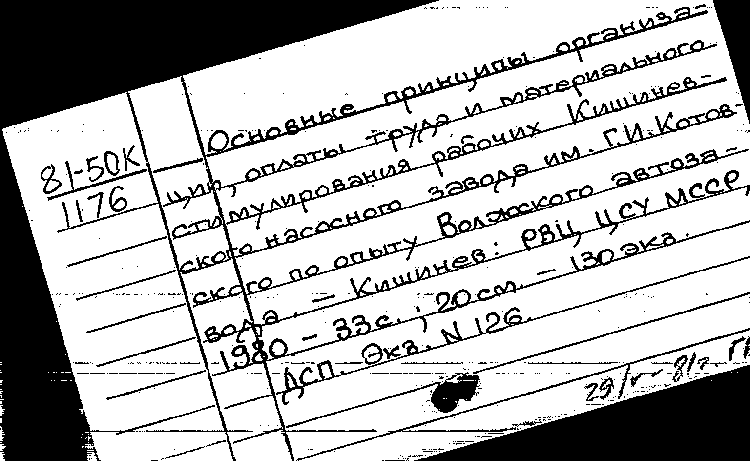 81-50К
1176
Основные принципы организа-
ции, оплаты труда и материального
стимулирования рабочих Кишинев-
ского насосного завода им. Г.И. Котов-
ского по опыту Волжского автоза-
вода. – Кишинев: РВЦ ЦСУ МССР,
1980 – 33с. ; 20см. – 130 экз.
ДСП. Экз. N 126.